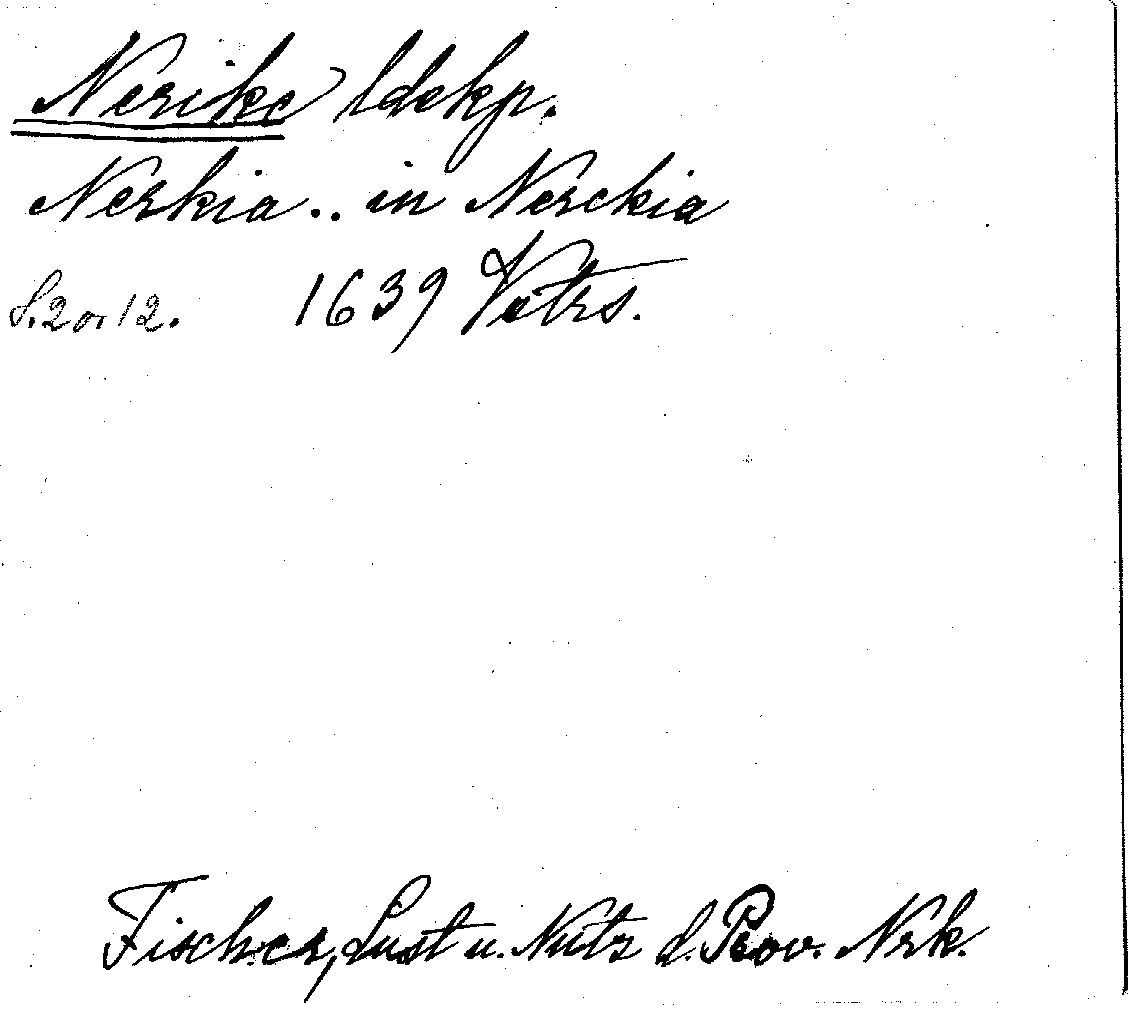 Nerike ldskp.
Nerkia .. in Nerckia
S. 2 o. 12. 1639 Votrs.
Fischer, Lust u. Nutz d. Prov. Nrk.